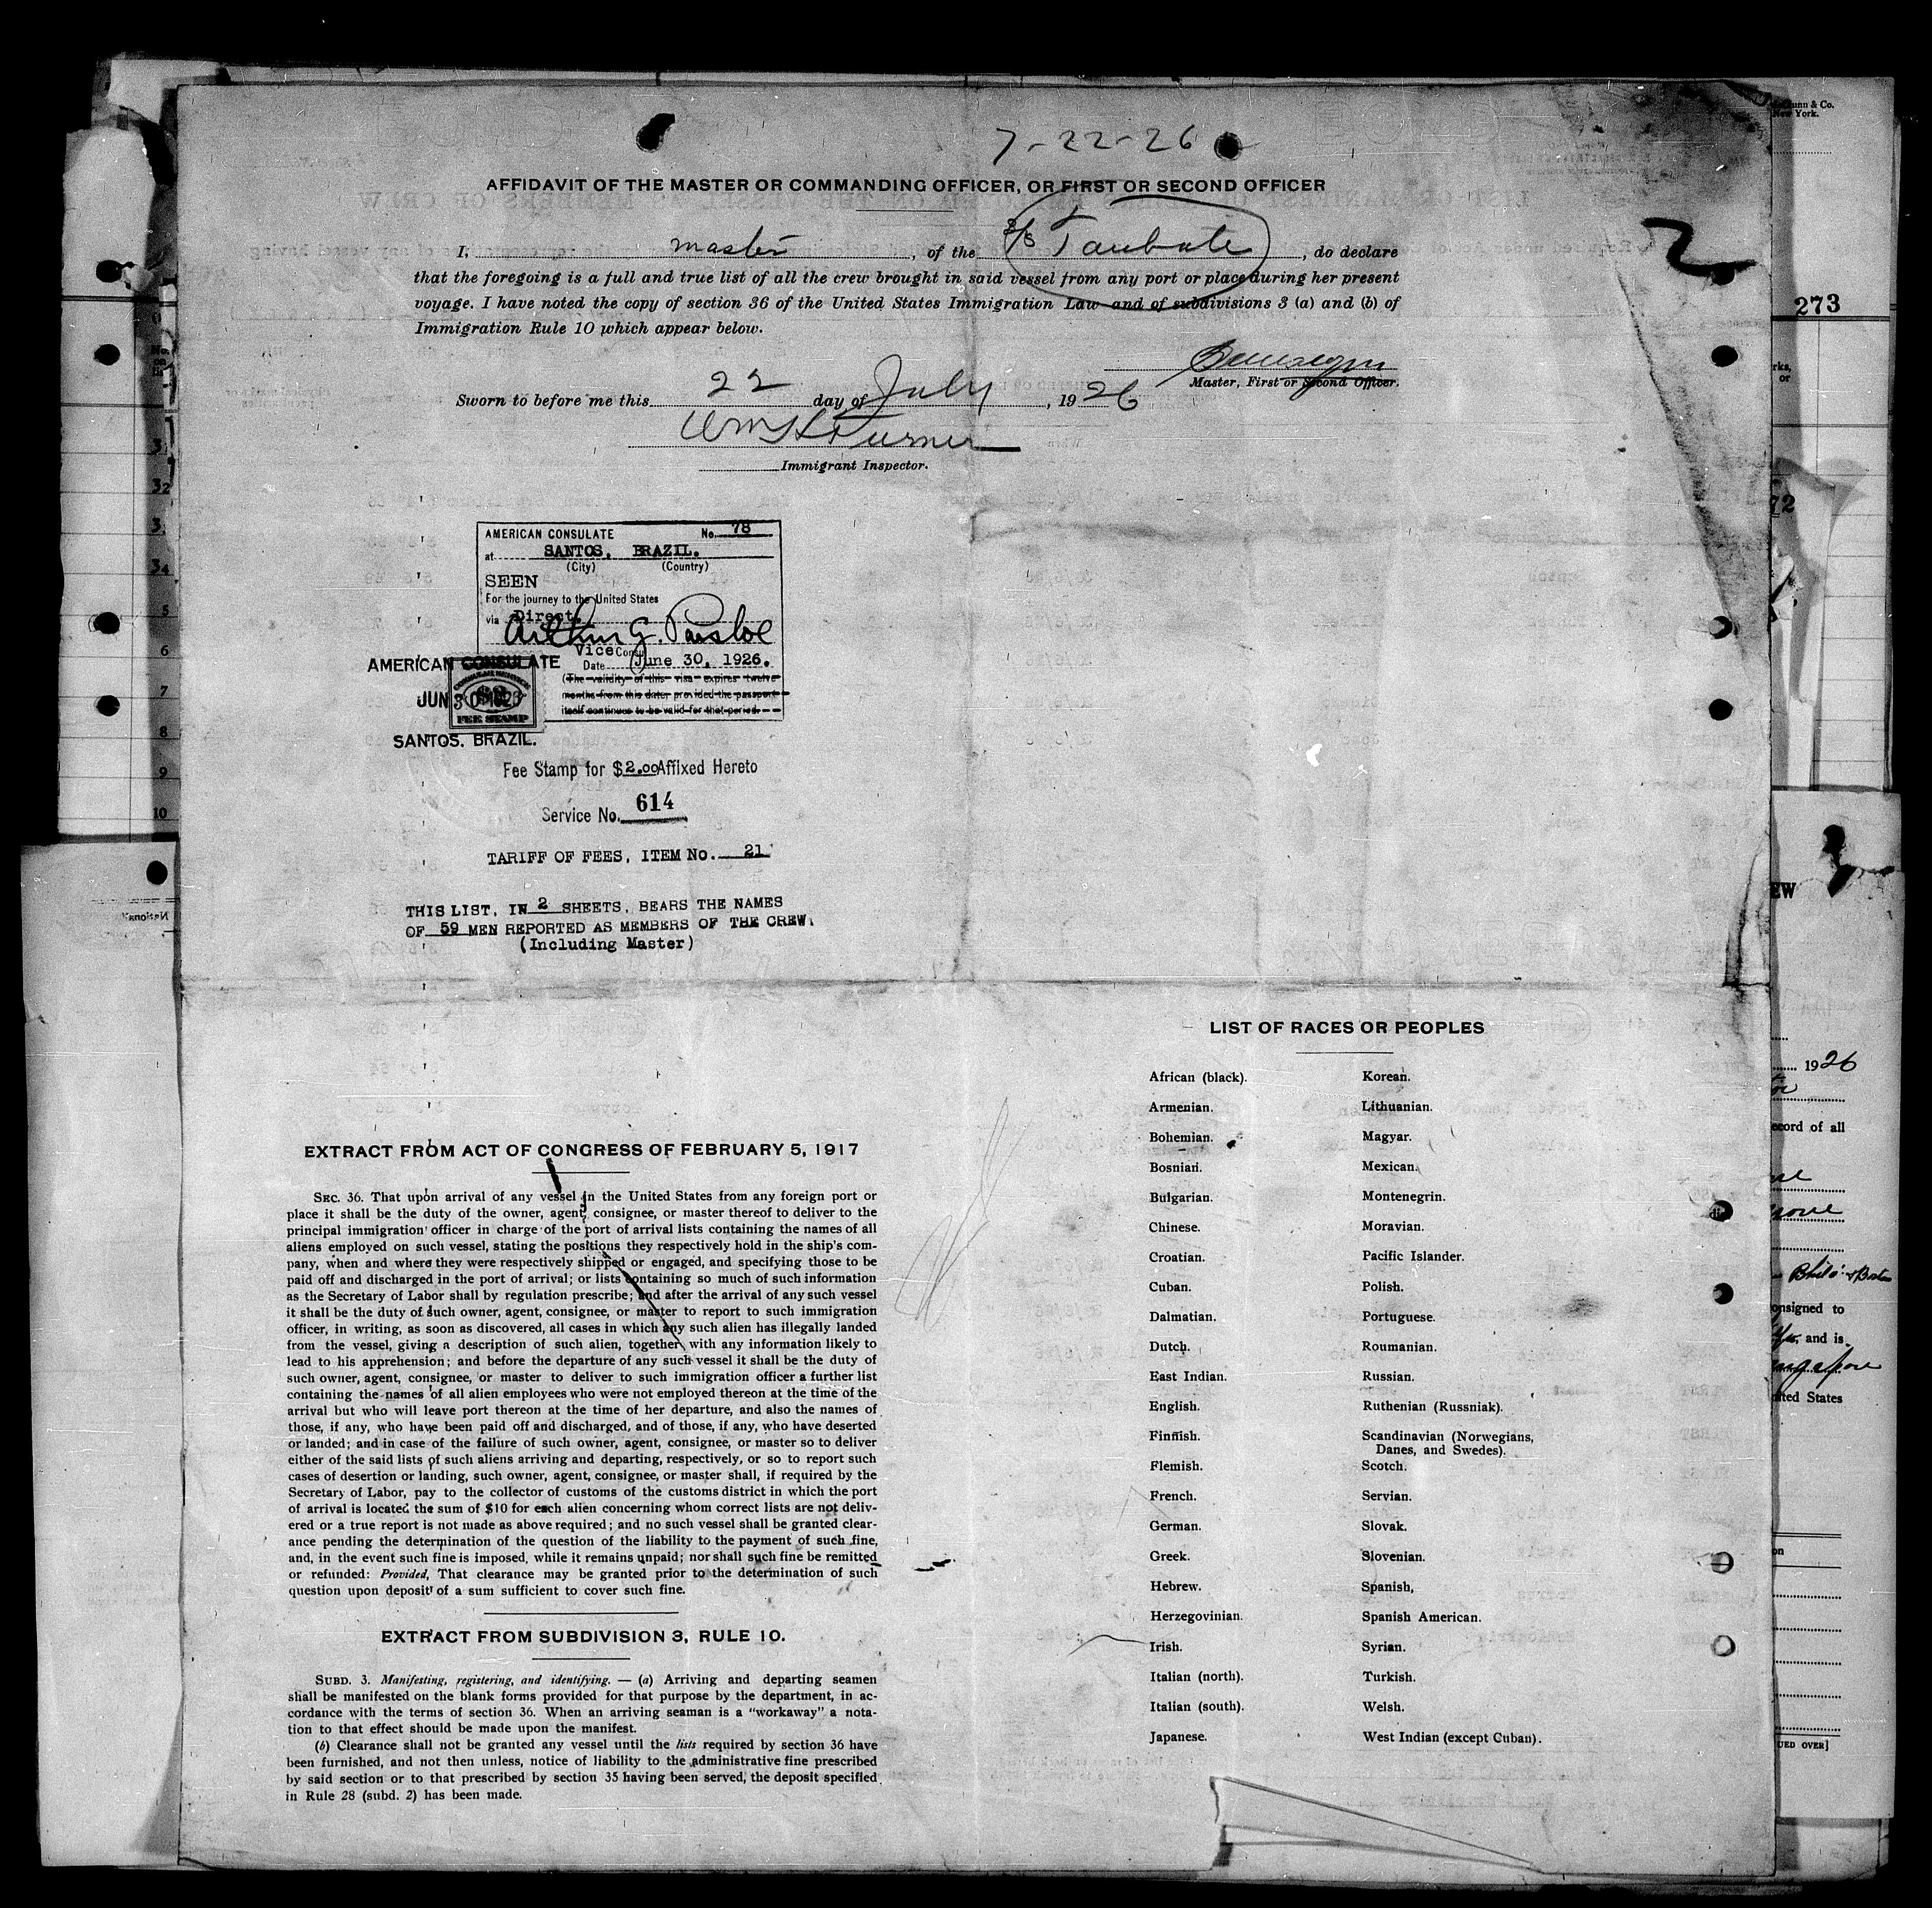 7-22-26
AFFIDAVIT OF THE MASTER OR COMMANDING OFFICER, OR FIRST OR SECOND OFFICER
I, master, of the S/S Taubate, do declare
that the foregoing is a full and true list of all the crew brought in said vessel from any port or place during her present
voyage. I have noted the copy of section 36 of the United States Immigration Law and of subdivisions 3 (a) and (b) of
Immigration Rule 10 which appear below.
Master, First or Second Officer.
Sworn to before me this 22 day of July, 1926
Turner
Immigrant Inspector.
AMERICAN CONSULATE No. 78
at SANTOS, BRAZIL.
(City) (Country)
SEEN
For the journey to the United States
via Direct
Arthur G. Parsloe
Vice Consul
Date June 30, 1926.
(The validity of this visa expires twelve
months from this date, provided the passport
itself continues to be valid for that period.
AMERICAN CONSULATE
JUN 30 1926
FEE STAMP
SANTOS, BRAZIL.
Fee Stamp for $2.00 Affixed Hereto
Service No. 614
TARIFF OF FEES, ITEM No. 21
THIS LIST, IN 2 SHEETS, BEARS THE NAMES
OF 59 MEN REPORTED AS MEMBERS OF THE CREW.
(Including Master)
EXTRACT FROM ACT OF CONGRESS OF FEBRUARY 5, 1917
SEC. 36. That upon arrival of any vessel in the United States from any foreign port or
place it shall be the duty of the owner, agent, consignee, or master thereof to deliver to the
principal immigration officer in charge of the port of arrival lists containing the names of all
aliens employed on such vessel, stating the positions they respectively hold in the ship's com-
pany, when and where they were respectively shipped or engaged, and specifying those to be
paid off and discharged in the port of arrival; or lists containing so much of such information
as the Secretary of Labor shall by regulation prescribe; and after the arrival of any such vessel
it shall be the duty of such owner, agent, consignee, or master to report to such immigration
officer, in writing, as soon as discovered, all cases in which any such alien has illegally landed
from the vessel, giving a description of such alien, together with any information likely to
lead to his apprehension; and before the departure of any such vessel it shall be the duty of
such owner, agent, consignee, or master to deliver to such immigration officer a further list
containing the names of all alien employees who were not employed thereon at the time of the
arrival but who will leave port thereon at the time of her departure, and also the names of
those, if any, who have been paid off and discharged, and of those, if any, who have deserted
or landed; and in case of the failure of such owner, agent, consignee, or master so to deliver
either of the said lists of such aliens arriving and departing, respectively, or so to report such
cases of desertion or landing, such owner, agent, consignee, or master shall, if required by the
Secretary of Labor, pay to the collector of customs of the customs district in which the port
of arrival is located the sum of $10 for each alien concerning whom correct lists are not deliv-
ered or a true report is not made as above required; and no such vessel shall be granted clear-
ance pending the determination of the question of the liability to the payment of such fine,
and, in the event such fine is imposed, while it remains unpaid; nor shall such fine be remitted
or refunded: Provided, That clearance may be granted prior to the determination of such
question upon deposit of a sum sufficient to cover such fine.
EXTRACT FROM SUBDIVISION 3, RULE 10.
SUBD. 3. Manifesting, registering, and identifying. — (a) Arriving and departing seamen
shall be manifested on the blank forms provided for that purpose by the department, in ac-
cordance with the terms of section 36. When an arriving seaman is a "workaway" a nota-
tion to that effect should be made upon the manifest.
(b) Clearance shall not be granted any vessel until the lists required by section 36 have
been furnished, and not then unless, notice of liability to the administrative fine prescribed
by said section or to that prescribed by section 35 having been served, the deposit specified
in Rule 28 (subd. 2) has been made.
LIST OF RACES OR PEOPLES
African (black).
Armenian.
Bohemian.
Bosnian.
Bulgarian.
Chinese.
Croatian.
Cuban.
Dalmatian.
Dutch.
East Indian.
English.
Finnish.
Flemish.
French.
German.
Greek.
Hebrew.
Herzegovinian.
Irish.
Italian (north).
Italian (south).
Japanese.
Korean.
Lithuanian.
Magyar.
Mexican.
Montenegrin.
Moravian.
Pacific Islander.
Polish.
Portuguese.
Roumanian.
Russian.
Ruthenian (Russniak).
Scandinavian (Norwegians,
Danes, and Swedes).
Scotch.
Servian.
Slovak.
Slovenian.
Spanish,
Spanish American.
Syrian.
Turkish.
Welsh.
West Indian (except Cuban).
& Co.
New York.
273
1926
of all
and is
States